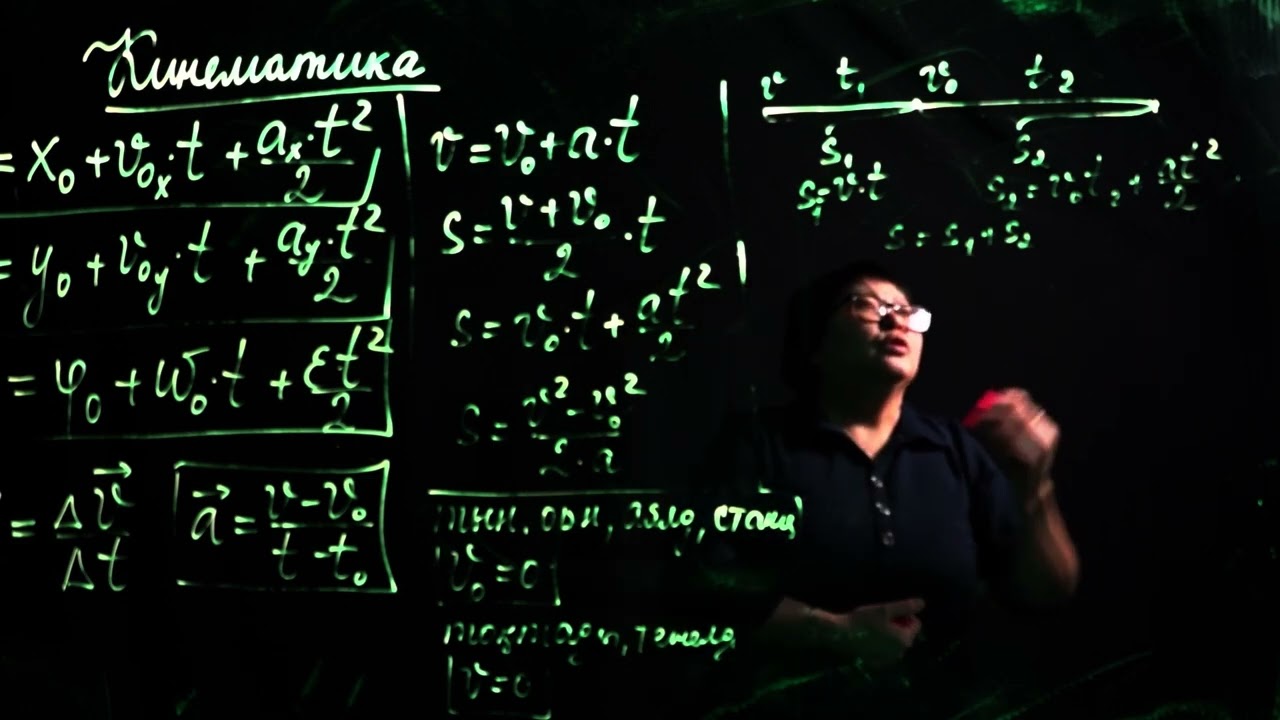 Кинематика
= x₀ + v₀ₓ · t + aₓ · t² / 2
= y₀ + v₀y · t + ay · t² / 2
= φ₀ + ω₀ · t + εt² / 2
= Δv⃗ / Δt
a⃗ = v - v₀ / t - t₀
v = v₀ + a · t
s = v + v₀ / 2 · t
s = v₀ · t + at² / 2
s = v² - v₀² / 2 · a
v₀ = 0
v = 0
v t₁ v₀ t₂
s₁ s₂
s₁ = v · t
s₂ = v₀ · t₂ + at² / 2
s = s₁ + s₂